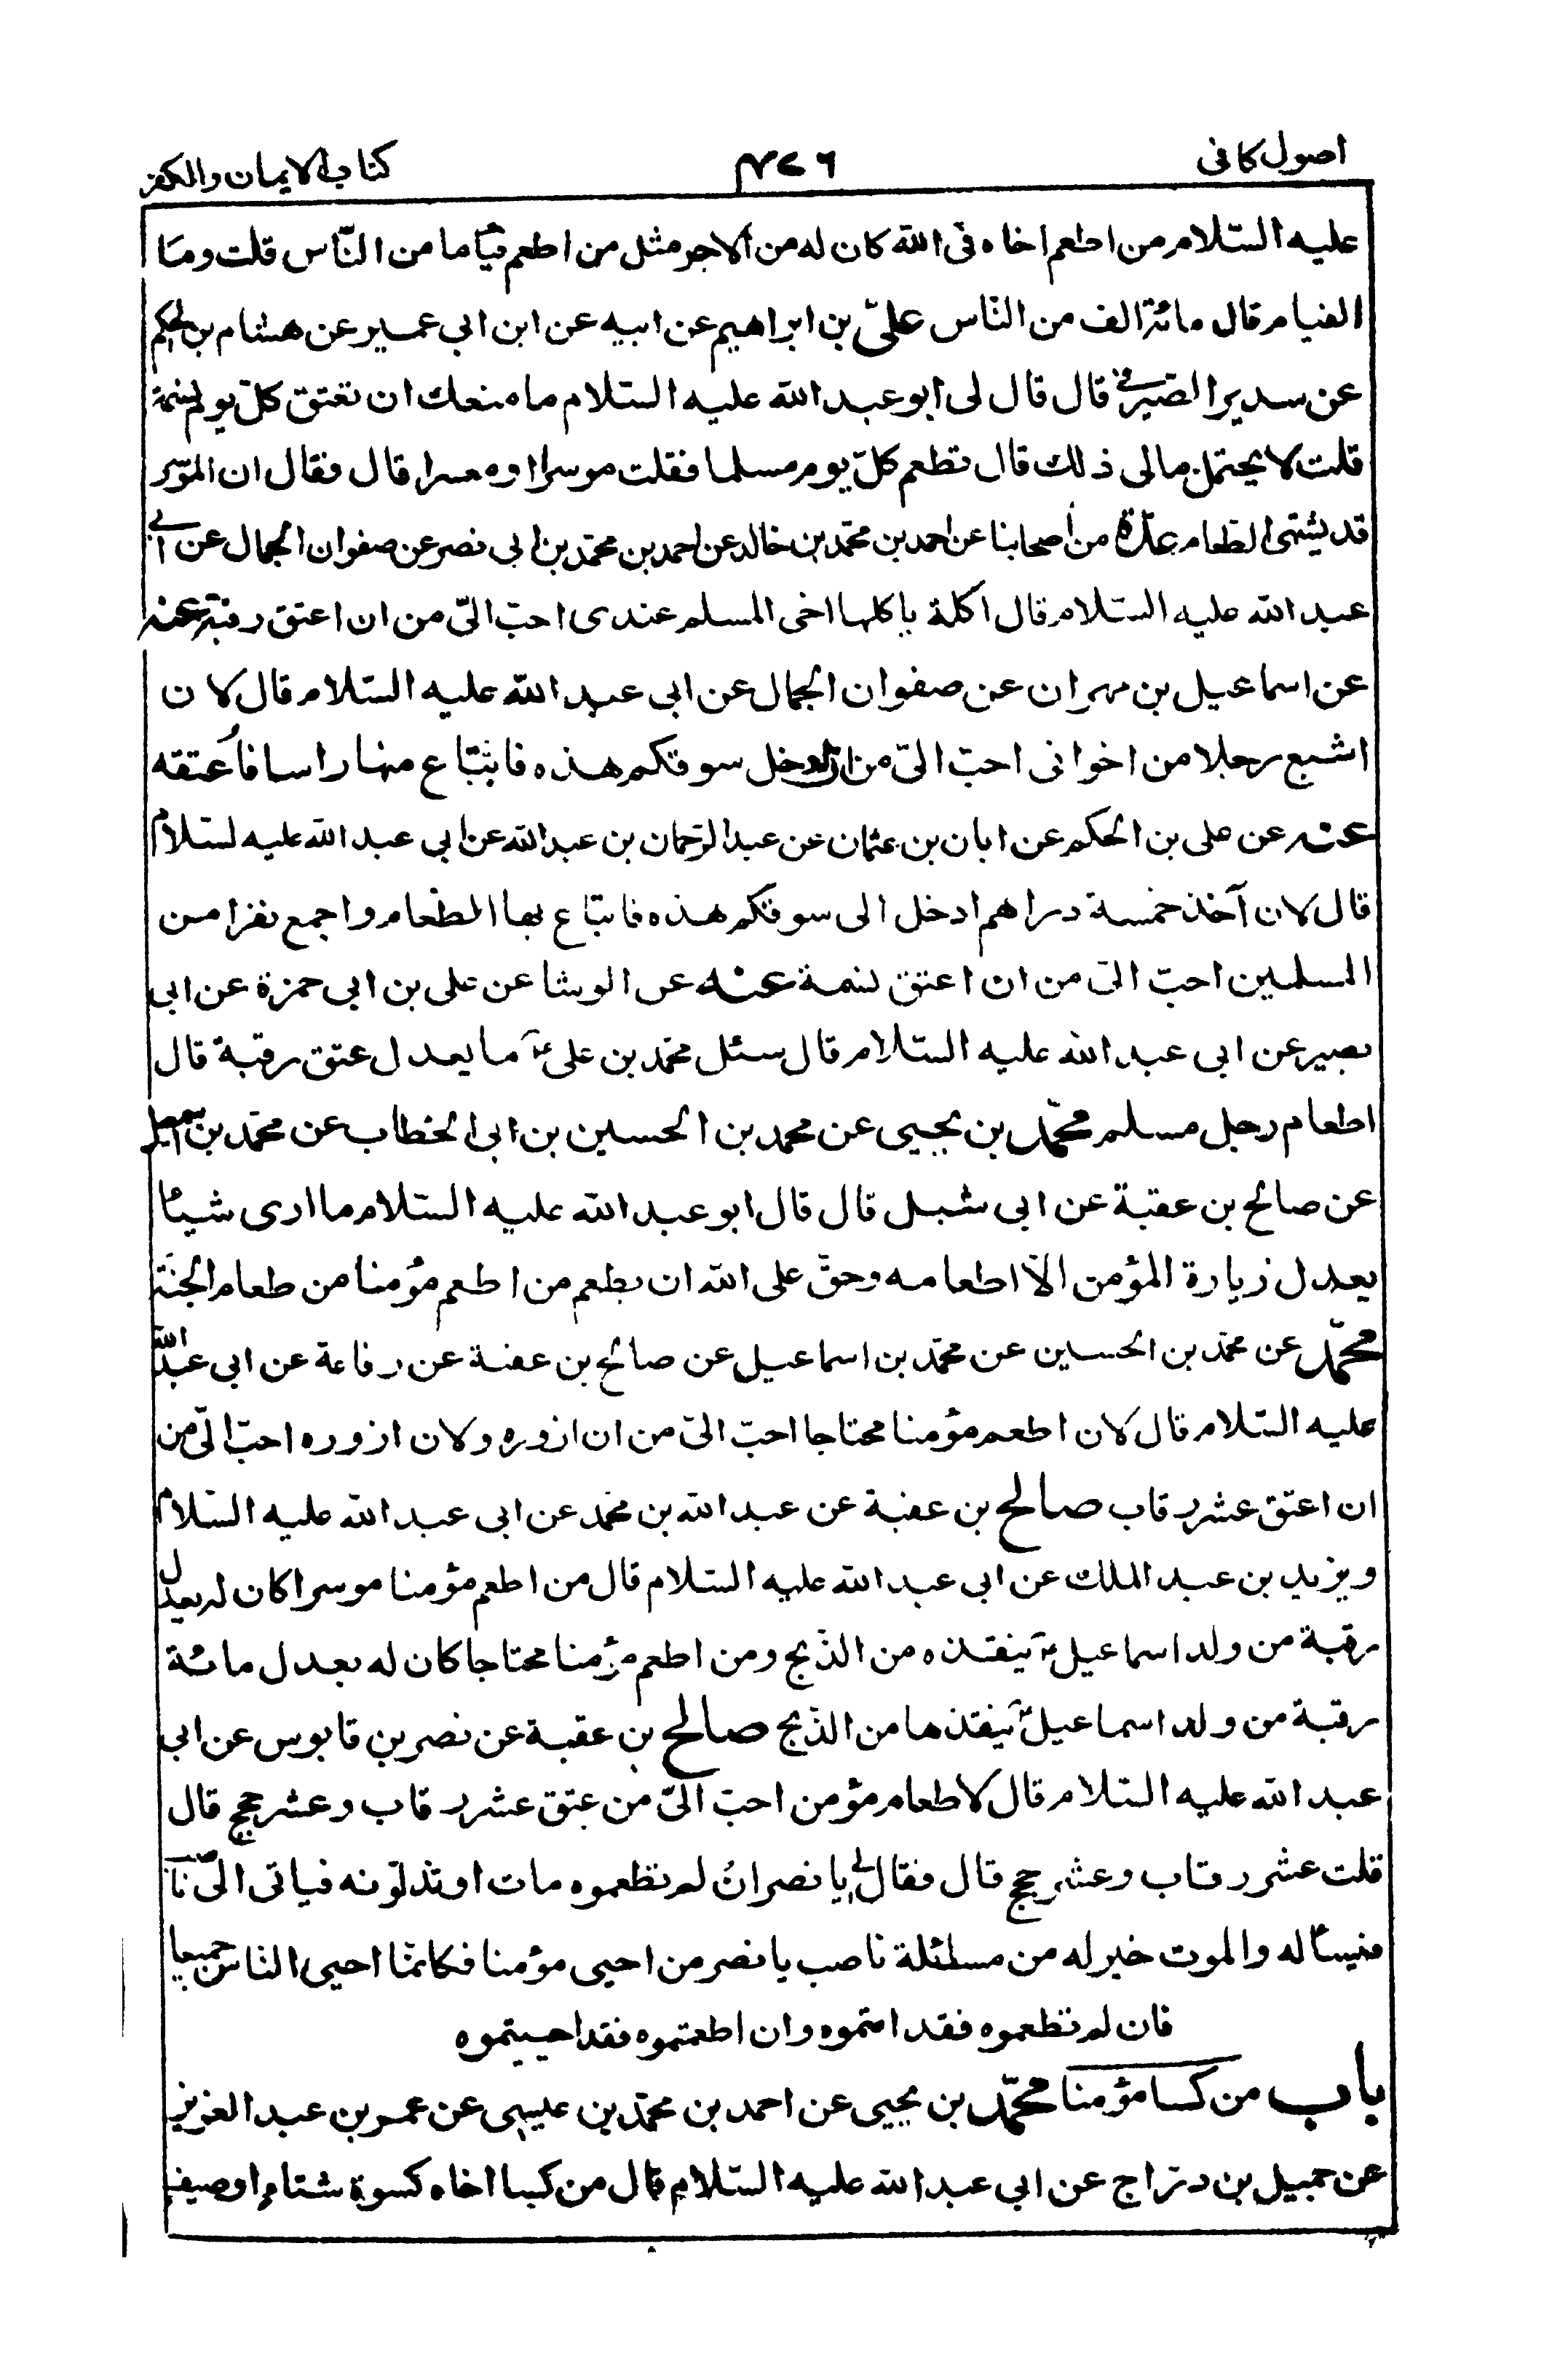 اصول كافى
٤٢٦
كتاب الايمان والكفر
عليه السّلام من اطعم اخاه فى الله كان له من الاجر مثل من اطعم فئاما من النّاس قلت وما
الفيام قال مائة الف من النّاس علىّ بن ابراهيم عن ابيه عن ابن ابى عمير عن هشام بن الحكم
عن سدير الصّيرفى قال قال لى ابو عبد الله عليه السّلام ما منعك ان تعتق كلّ يوم نسمة
قلت لا يحتمل مالى ذلك قال تطعم كلّ يوم مسلما فقلت موسرا او معسرا قال فقال ان الموسر
قد يشتهى الطّعام عدّة من أصحابنا عن احمد بن محمّد بن خالد عن احمد بن محمّد بن ابى نصر عن صفوان الجمال عن ابى
عبد الله عليه السّلام قال اكلة ياكلها اخى المسلم عندى احبّ الىّ من ان اعتق رقبة عنه
عن اسماعيل بن مهران عن صفوان الجمال عن ابى عبد الله عليه السّلام قال لان
اشبع رجلا من اخوانى احبّ الىّ من ان ادخل سوقكم هذه فابتاع منها راسا فأعتقه
عنه عن على بن الحكم عن ابان بن عثمان عن عبد الرّحمان بن عبد الله عن ابى عبد الله عليه السّلام
قال لان آخذ خمسة دراهم ادخل الى سوقكم هذه فابتاع بها الطعام واجمع نفرا من
المسلمين احبّ الىّ من ان اعتق نسمة عنه عن الوشا عن على بن ابى حمزة عن ابى
بصير عن ابى عبد الله عليه السّلام قال سئل محمّد بن علىّ ع ما يعدل عتق رقبة قال
اطعام رجل مسلم محمّد بن يحيى عن محمد بن الحسين بن ابى الخطاب عن محمّد بن اسمعيل
عن صالح بن عقبة عن ابى شبل قال قال ابو عبد الله عليه السّلام ما ارى شيئا
يعدل زيارة المؤمن الّا اطعامه وحقّ على الله ان يطعم من اطعم مؤمنا من طعام الجنّة
محمّد عن محمّد بن الحسين عن محمّد بن اسماعيل عن صالح بن عقبة عن رفاعة عن ابى عبد الله
عليه السّلام قال لان اطعم مؤمنا محتاجا احبّ الىّ من ان ازوره ولان ازوره احبّ الىّ من
ان اعتق عشر رقاب صالح بن عقبة عن عبد الله بن محمّد عن ابى عبد الله عليه السّلام
ويزيد بن عبد الملك عن ابى عبد الله عليه السّلام قال من اطعم مؤمنا موسرا كان له يعدل
رقبة من ولد اسماعيل ع ينقذه من الذّبح ومن اطعم مؤمنا محتاجا كان له يعدل مائة
رقبة من ولد اسماعيل ع ينقذها من الذّبح صالح بن عقبة عن نصر بن قابوس عن ابى
عبد الله عليه السّلام قال لاطعام مؤمن احبّ الىّ من عتق عشر رقاب وعشر حجج قال
قلت عشر رقاب وعشر حجج قال فقال لى يا نصر انُ لم تطعموه مات او تذلّونه فياتى الى ناصب
فيسأله والموت خير له من مسئلة ناصب يا نصر من احيى مؤمنا فكانّما احيى النّاس جميعا
فان لم تطعموه فقد امتموه وان اطعمتموه فقد احييتموه
باب من كسا مؤمنا محمّد بن يحيى عن احمد بن محمّد بن عيسى عن عمر بن عبد العزيز
عن جميل بن درّاج عن ابى عبد الله عليه السّلام قال من كسا اخاه كسوة شتاء او صيف